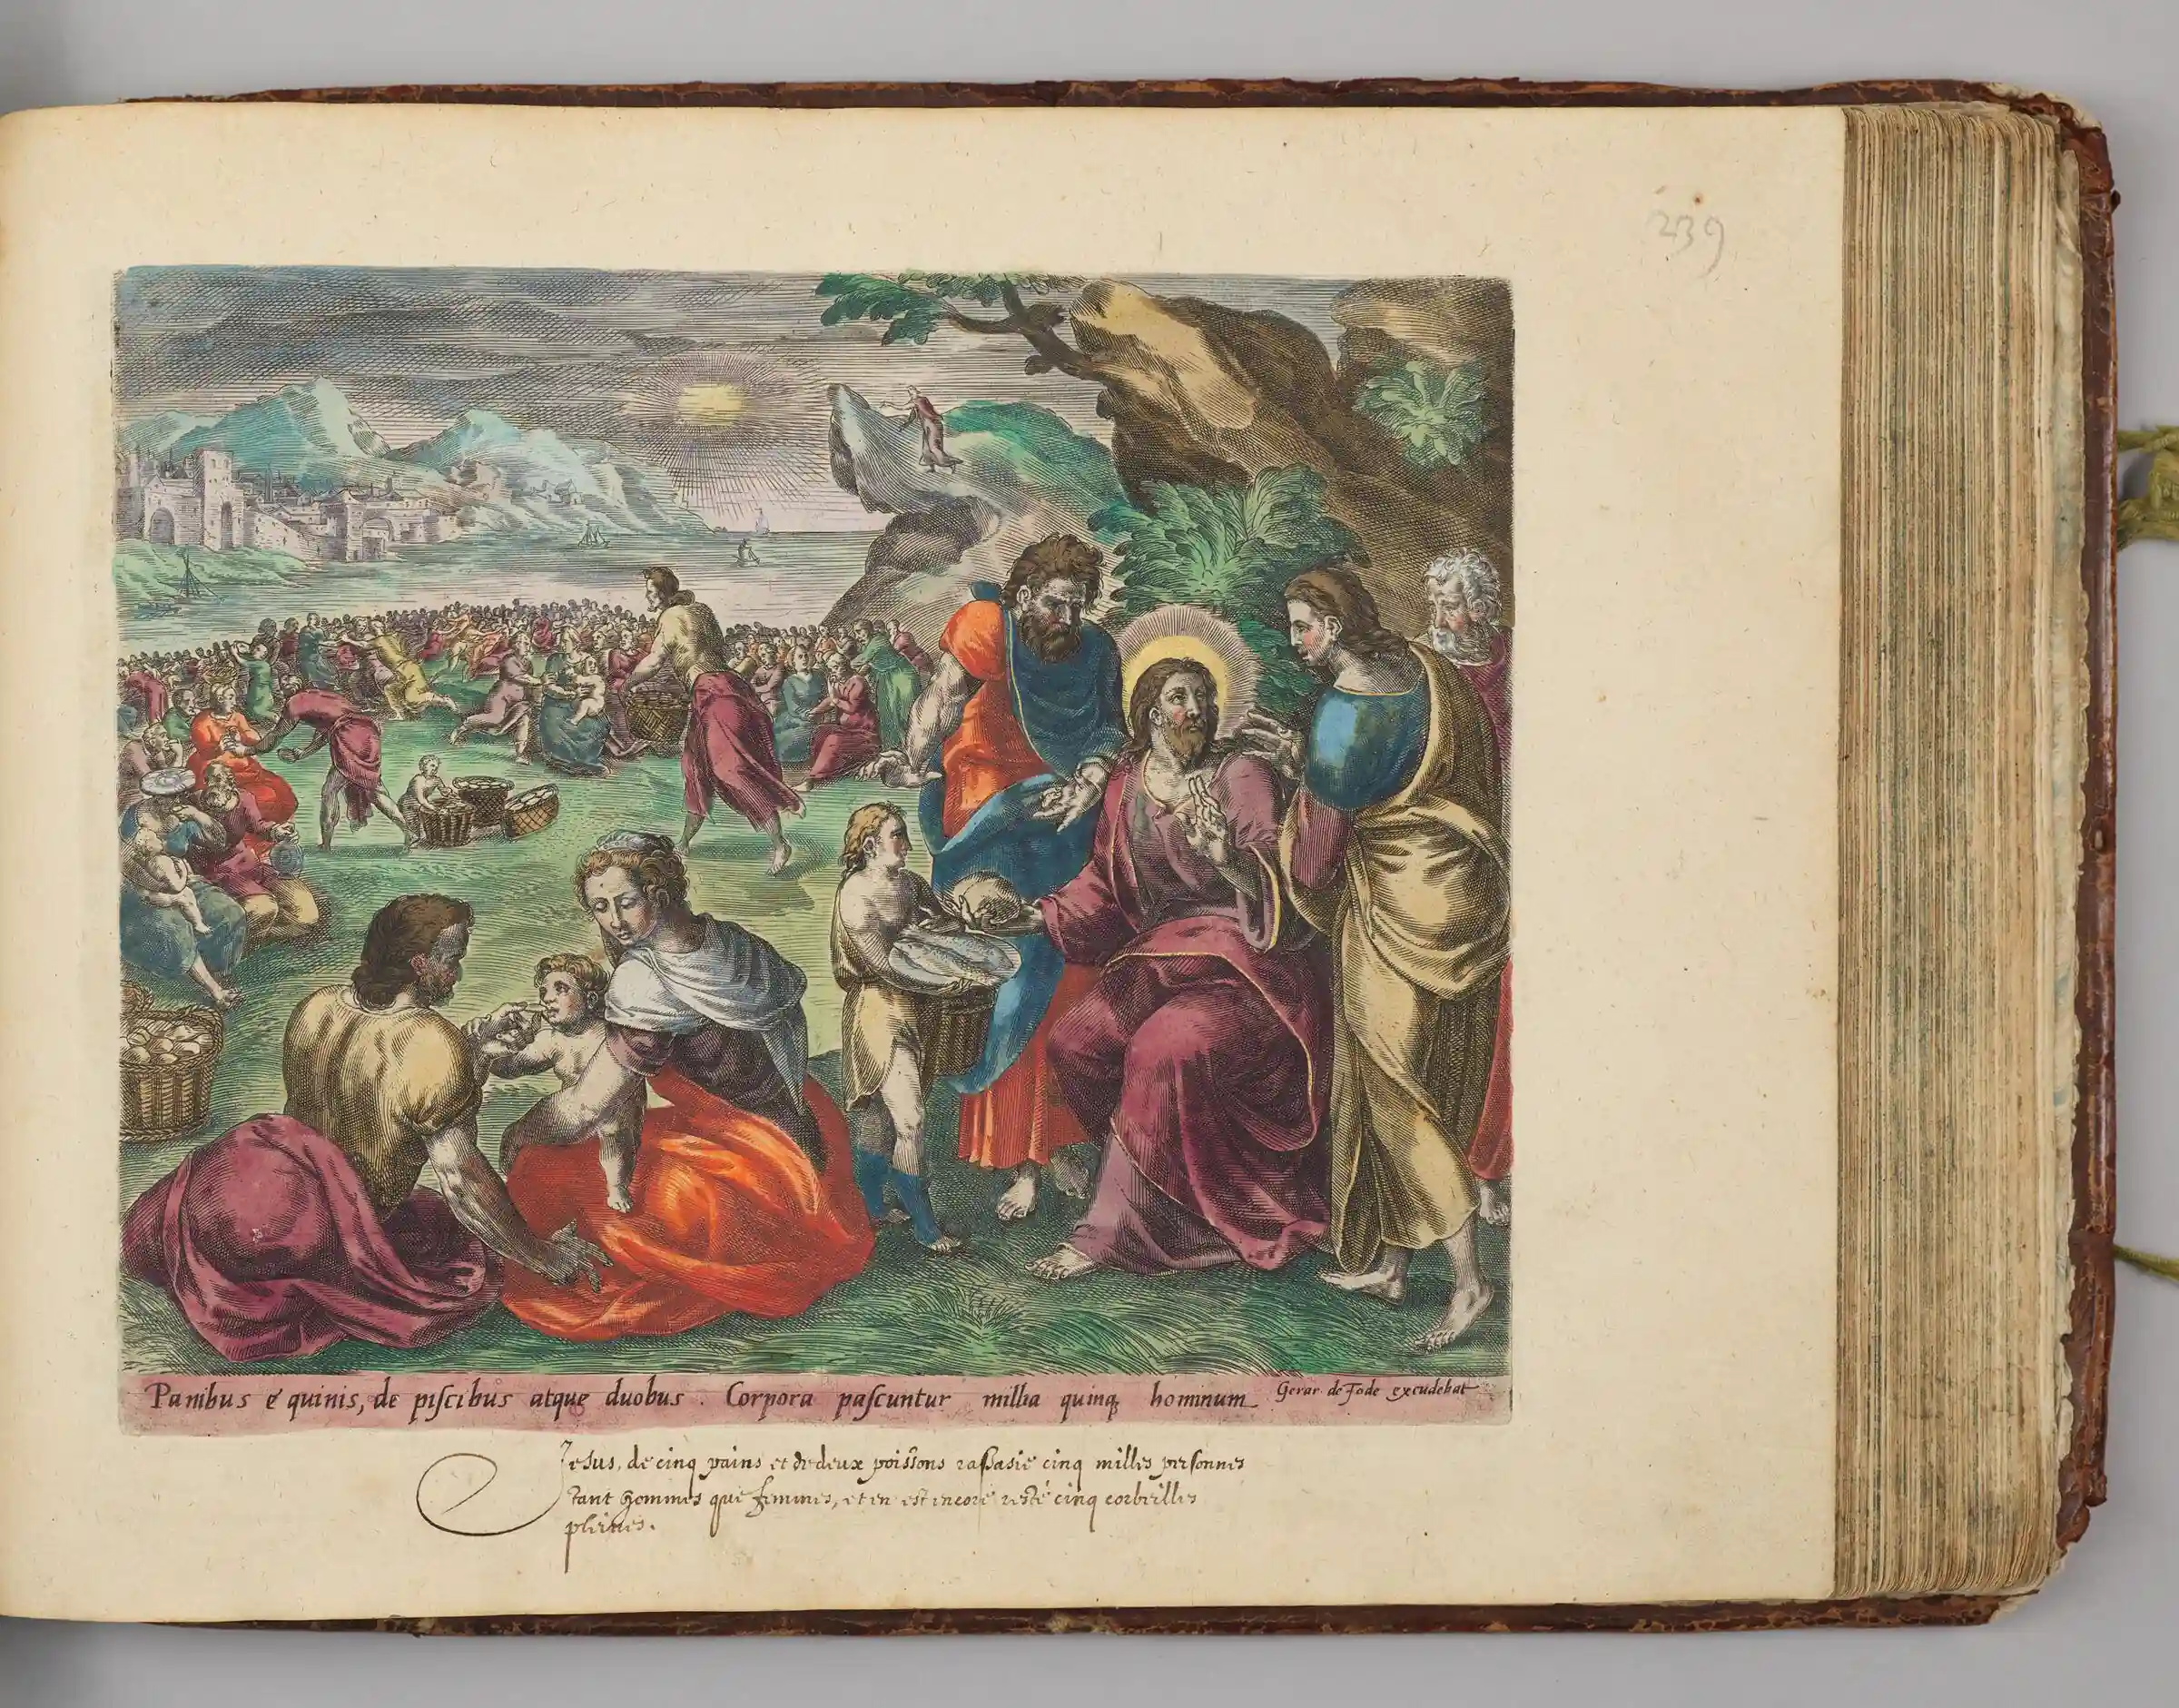 239
Panibus é quinis, de piſcibus atque duobus . Corpora paſcuntur millia quinq hominum Gerar de Jode excudebat
Jesus, de cinq pains et de deux poissons raſſasie cinq milles perſonnes
tant hommes que femmes, et en est encore resté cinq corbeilles
pleines.